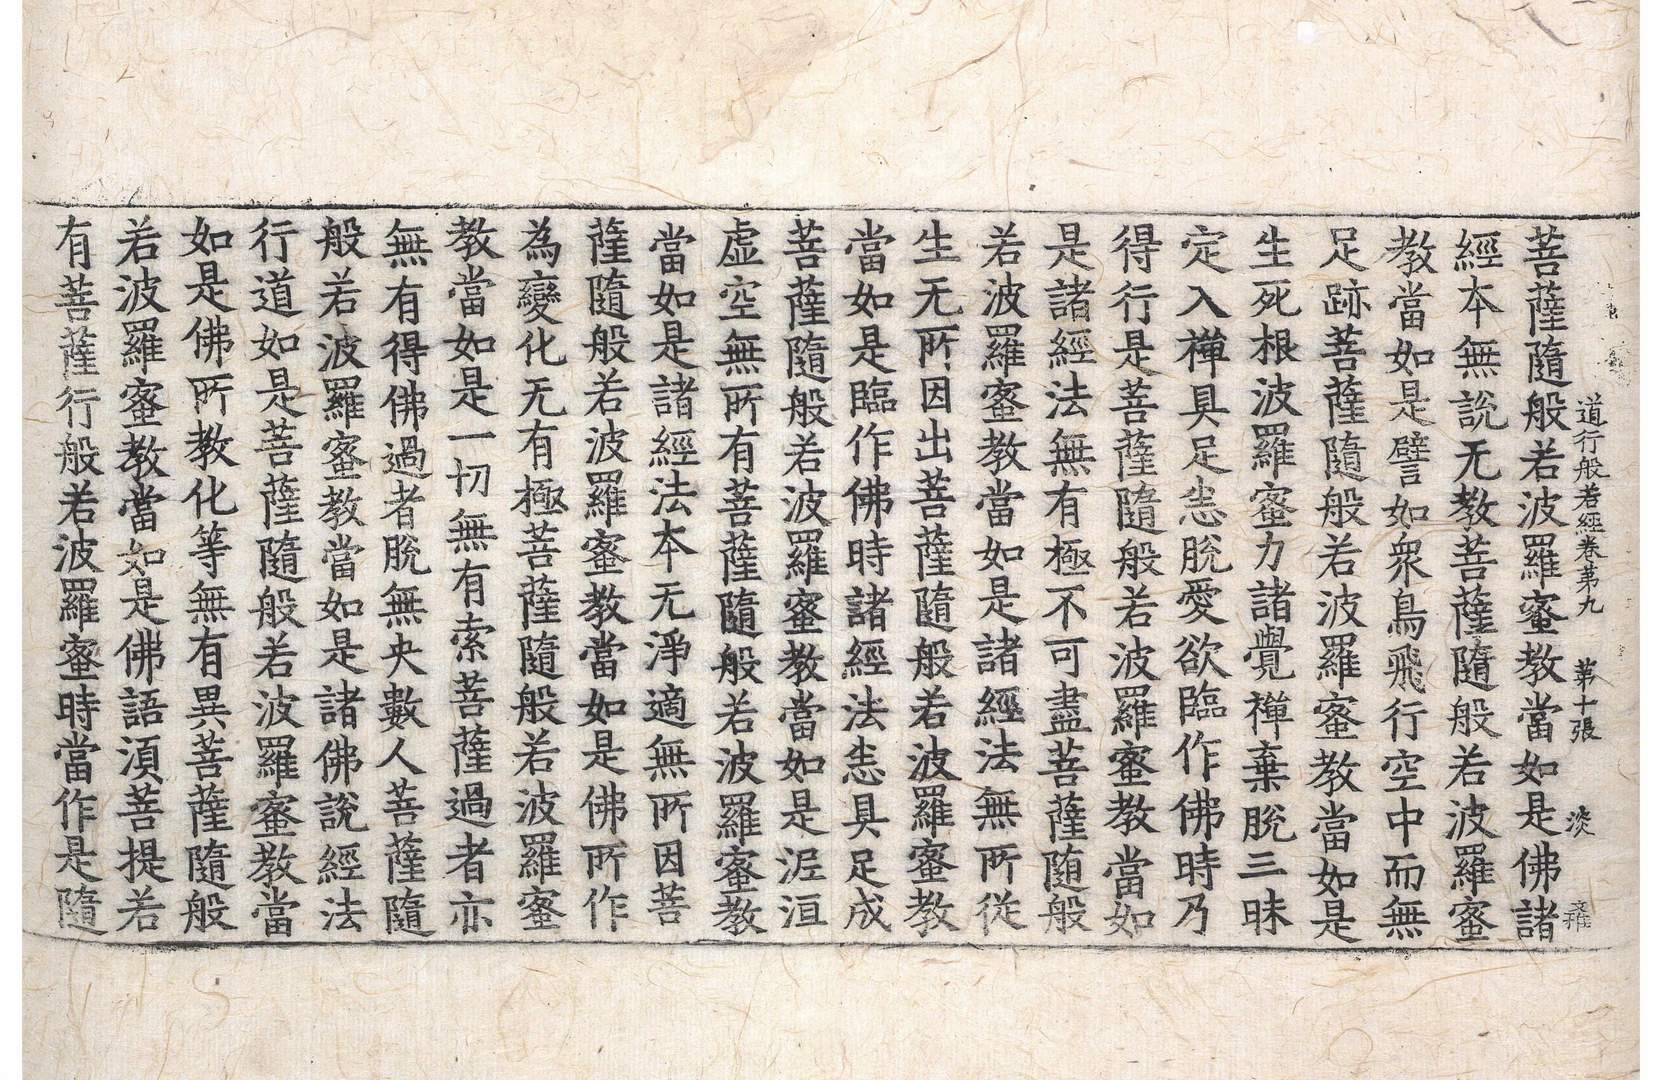 道行般若經卷第九　第十張　淡
菩薩隨般若波羅蜜教當如是佛諸
經本無說无教菩薩隨般若波羅蜜
教當如是譬如衆鳥飛行空中而無
足跡菩薩隨般若波羅蜜教當如是
生死根波羅蜜力諸覺禪棄脫三昧
定入禪具足恚脫愛欲臨作佛時乃
得行是菩薩隨般若波羅蜜教當如
是諸經法無有極不可盡菩薩隨般
若波羅蜜教當如是諸經法無所從
生无所因出菩薩隨般若波羅蜜教
當如是臨作佛時諸經法恚具足成
菩薩隨般若波羅蜜教當如是泥洹
虛空無所有菩薩隨般若波羅蜜教
當如是諸經法本无淨適無所因菩
薩隨般若波羅蜜教當如是佛所作
為變化无有極菩薩隨般若波羅蜜
教當如是一切無有索菩薩過者亦
無有得佛過者脫無央數人菩薩隨
般若波羅蜜教當如是諸佛說經法
行道如是菩薩隨般若波羅蜜教當
如是佛所教化等無有異菩薩隨般
若波羅蜜教當如是佛語須菩提若
有菩薩行般若波羅蜜時當作是隨